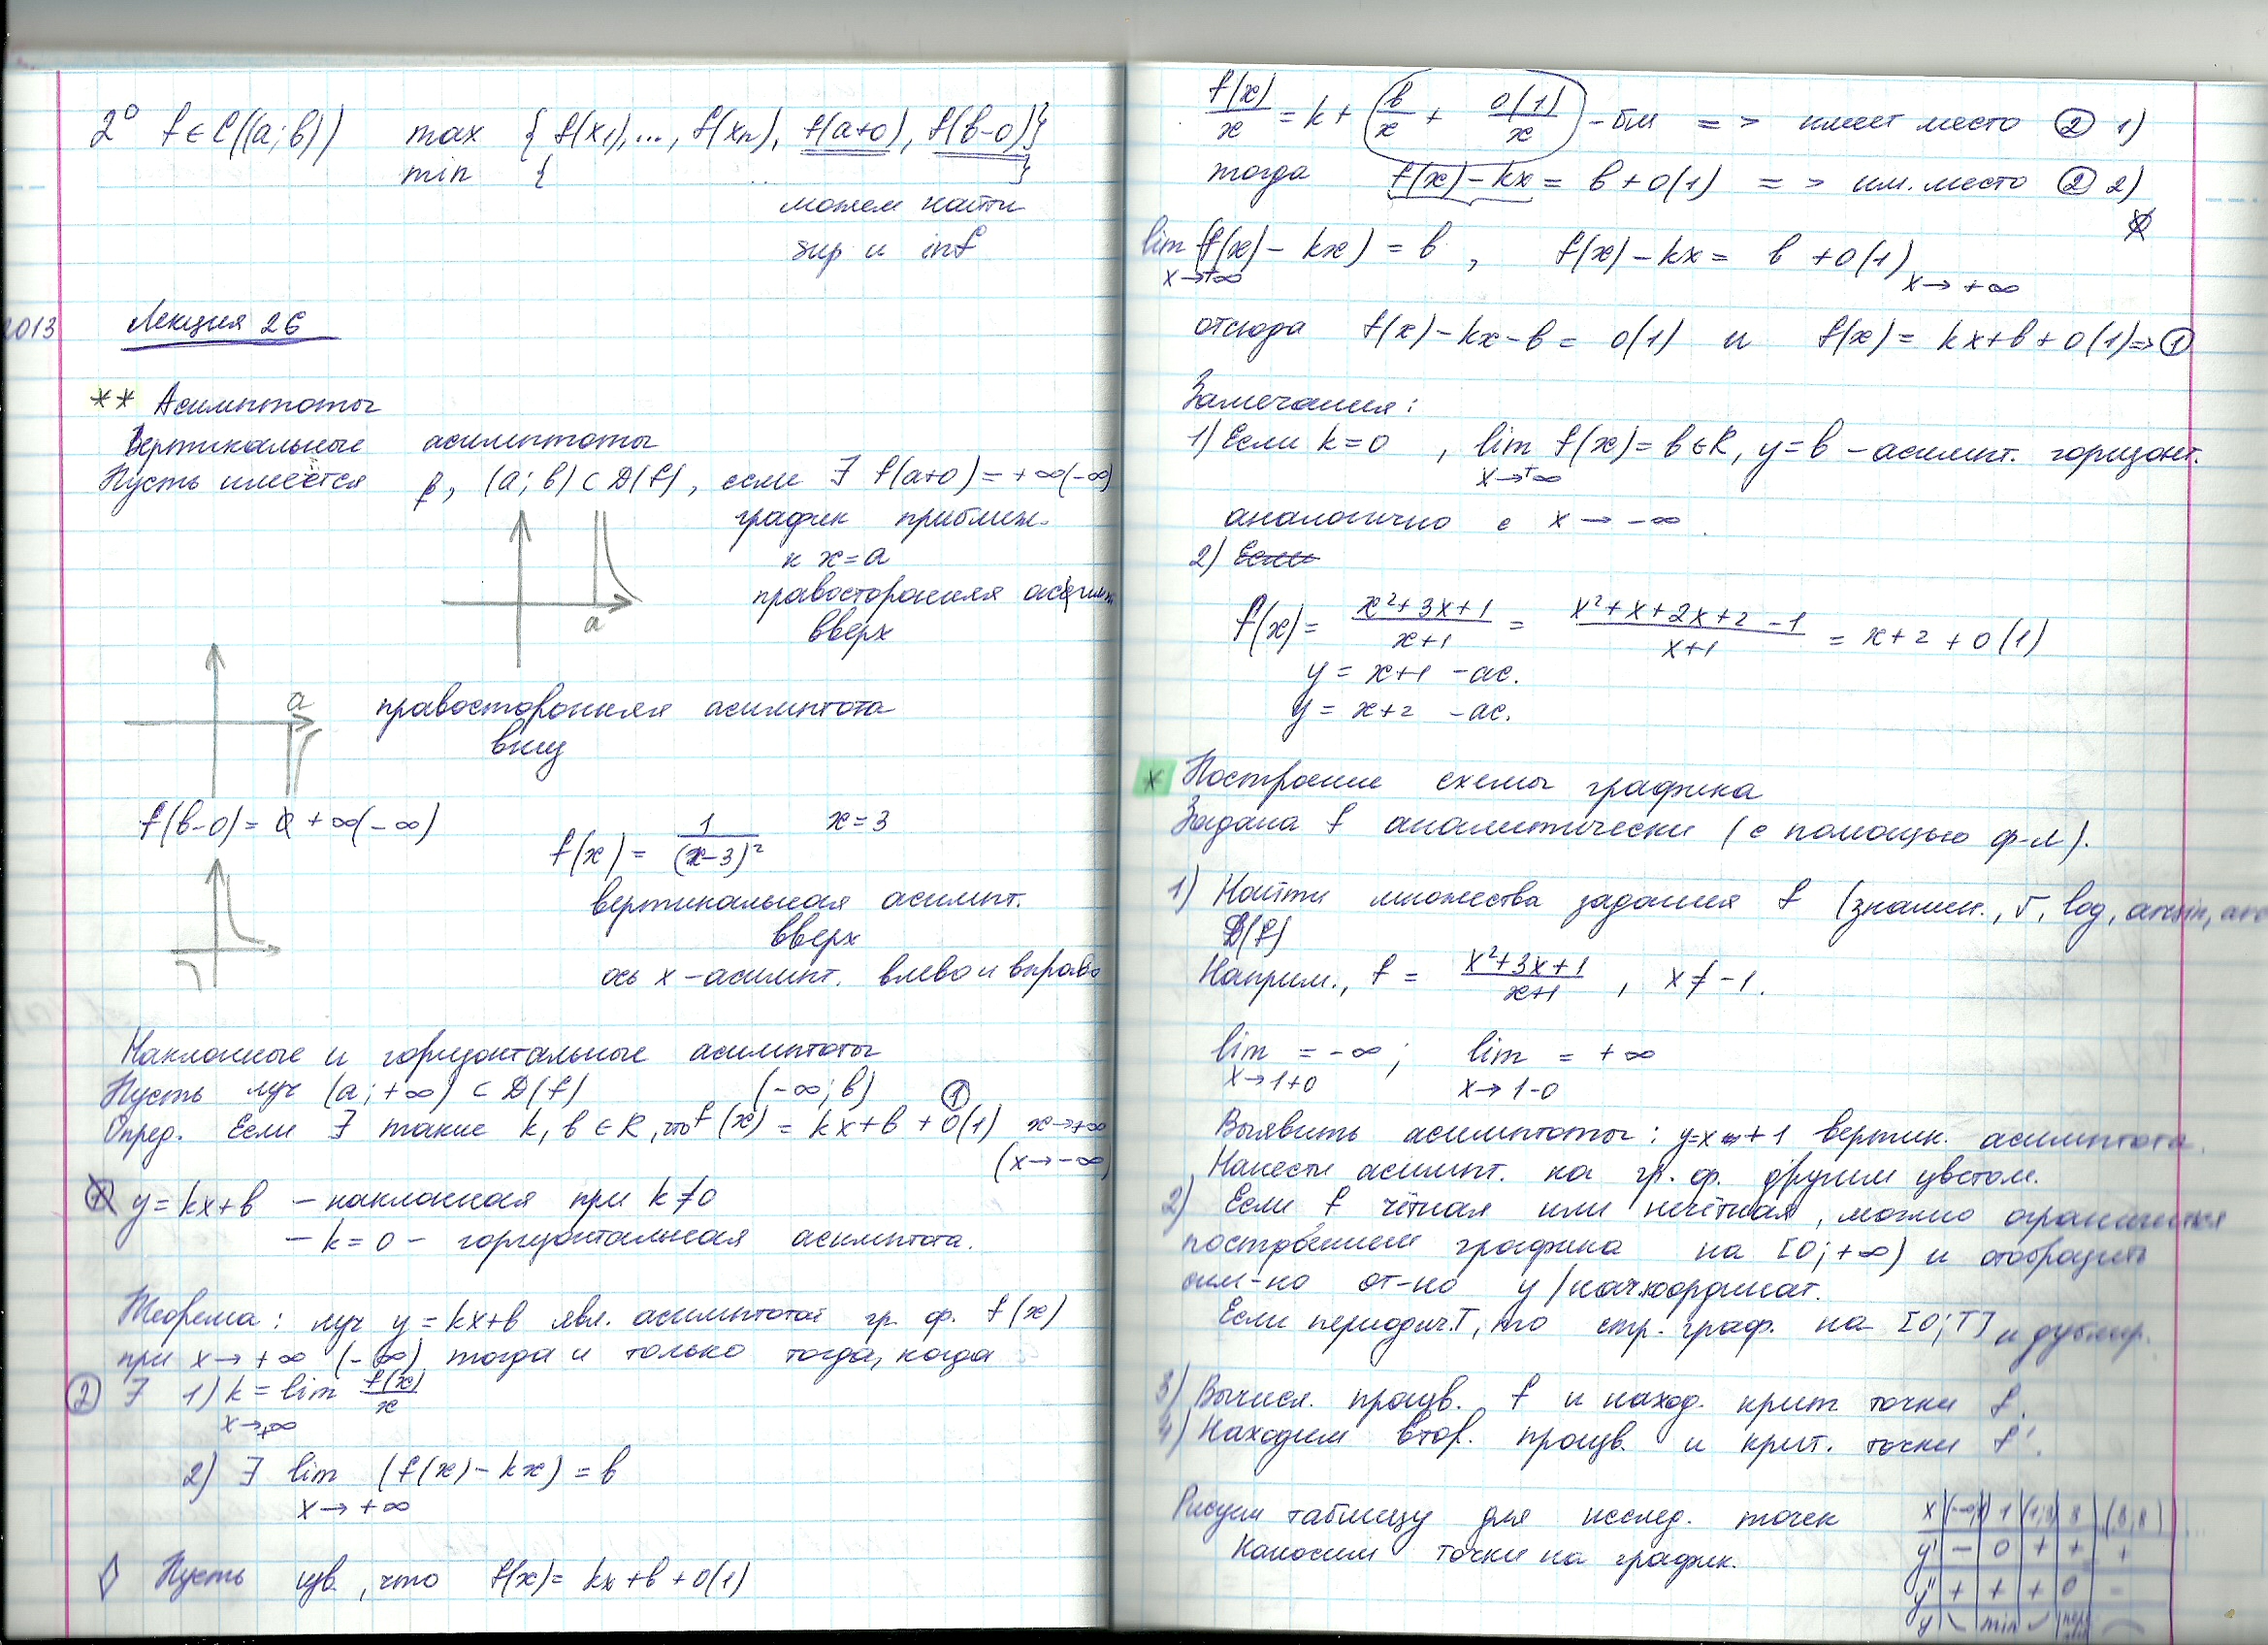 2° f ∈ C((a; b)) max { f(x₁), ..., f(xₙ), f(a+0), f(b-0)}
min { ... }
можем найти
sup и inf
2013 Лекция 26
** Асимптоты
Вертикальные асимптоты
Пусть имеется f, (a; b) ⊂ D(f), если ∃ f(a+0) = +∞(-∞)
график приближ.
к x=a
правосторонняя асимпт
вверх
a
a
правосторонняя асимптота
вниз
f(b-0) = +∞(-∞)
f(x) = 1/(x-3)² x=3
вертикальная асимпт.
вверх
ось x - асимпт. влево и вправо
Наклонные и горизонтальные асимптоты
Пусть луч (a; +∞) ⊂ D(f) (-∞; b) ①
Опред. Если ∃ такие k, b ∈ R, что f(x) = kx+b + o(1) x→+∞
(x→-∞)
y = kx+b - наклонная при k≠0
- k=0 - горизонтальная асимптота.
Теорема: луч y=kx+b явл. асимптотой гр. ф. f(x)
при x→+∞ (-∞) тогда и только тогда, когда
② ∃ 1) k = lim f(x)/x
x→+∞
2) ∃ lim (f(x) - kx) = b
x→+∞
◊ Пусть изв., что f(x) = kx+b+o(1)
f(x)/x = k + (b/x + o(1)/x) - бм => имеет место ② 1)
тогда f(x)-kx = b+o(1) => им. место ② 2)
lim (f(x) - kx) = b, f(x) - kx = b + o(1)
x→+∞ x→+∞
отсюда f(x)-kx-b = o(1) и f(x) = kx+b+o(1) => ①
Замечания:
1) Если k=0, lim f(x) = b ∈ R, y=b - асимпт. горизонт.
x→+∞
аналогично с x→-∞.
2) Если
f(x) = (x²+3x+1)/(x+1) = (x²+x+2x+2-1)/(x+1) = x+2+o(1)
y = x+1 - ас.
y = x+2 - ас.
* Построение схемы графика
Задана f аналитически (с помощью ф-л).
1) Найти множества задания f (знамен., √, log, arcsin, arc
D(f)
Наприм., f = (x²+3x+1)/(x+1), x≠-1.
lim = -∞; lim = +∞
x→1+0 x→1-0
Выявить асимптоты: y=x+1 вертик. асимптота.
Нанести асимпт. на гр. ф. другим цветом.
2) Если f чётная или нечётная, можно ограничиться
построением графика на [0; +∞) и отобразить
сим-но от-но y / нач. координат.
Если периодич. T, то стр. граф. на [0; T] и дублир.
3) Вычисл. произв. f и наход. крит. точки f.
4) Находим втор. произв. и крит. точки f'.
Рисуем таблицу для исслед. точек
Наносим точки на график.
x (-∞;1) 1 (1;3) 3 (3;8)
y' - 0 + + +
y'' + + + 0 -
y min